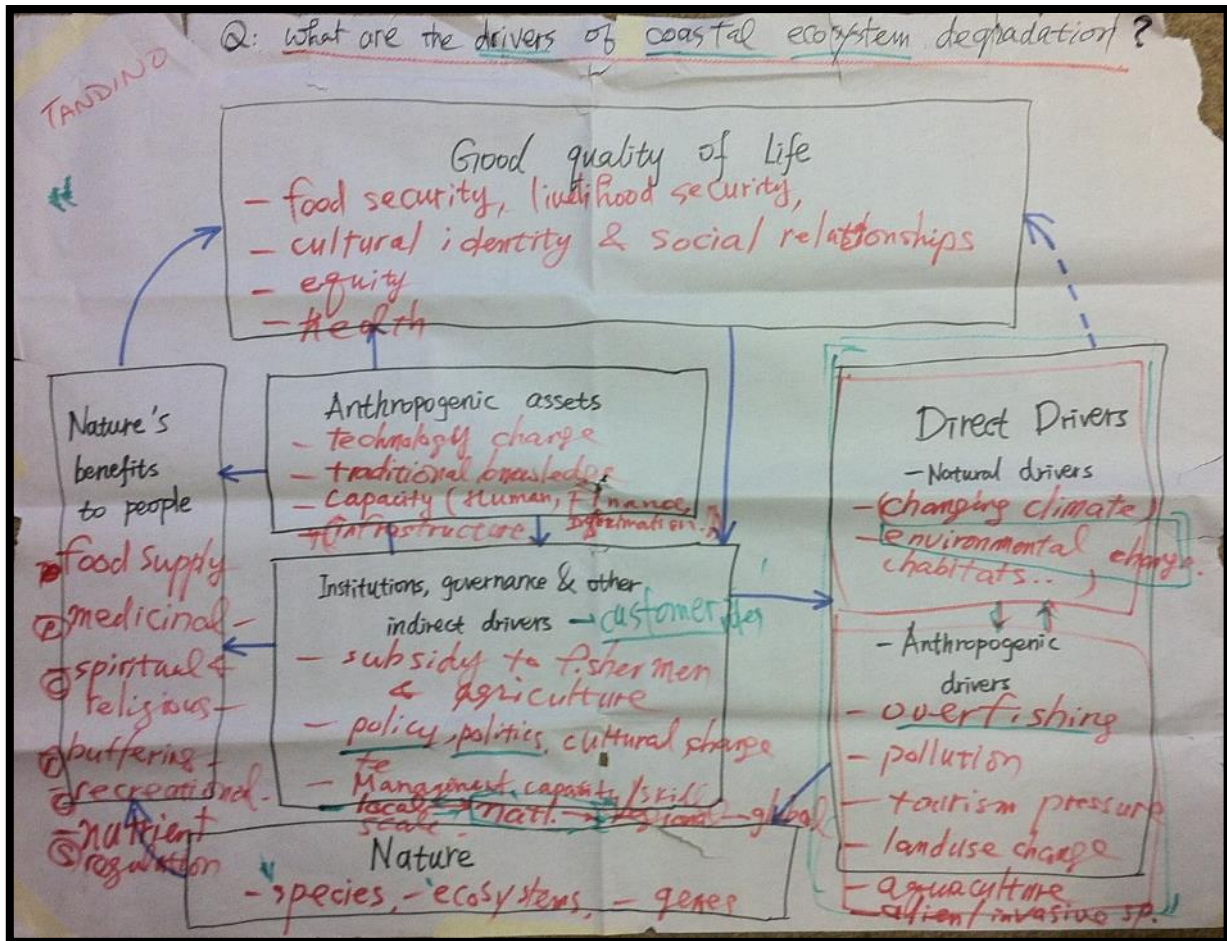 Q: What are the drivers of coastal ecosystem degradation?
TANDINO
Good quality of Life
- food security, livelihood security,
- cultural identity & social relationships
- equity
- Health
Nature's
benefits
to people
food supply
medicinal -
spiritual &
religious -
buffering -
recreational.
nutrient
regulation
Anthropogenic assets
- technology change
- traditional knowledge
- Capacity (Human, Finance,
Information.)
- Infrastructure
Institutions, governance & other
indirect drivers → customer
- subsidy to fishermen
& agriculture
- policy, politics, cultural change
- Management capacity/skill
local → natl. → regional - global
scale -
Nature
- species, - ecosystems, - genes
Direct Drivers
- Natural drivers
- (changing climate)
- environmental change.
chabitats.. ,
- Anthropogenic
drivers
- overfishing
- pollution
- tourism pressure
- landuse change
- aquaculture
- alien/invasive sp.